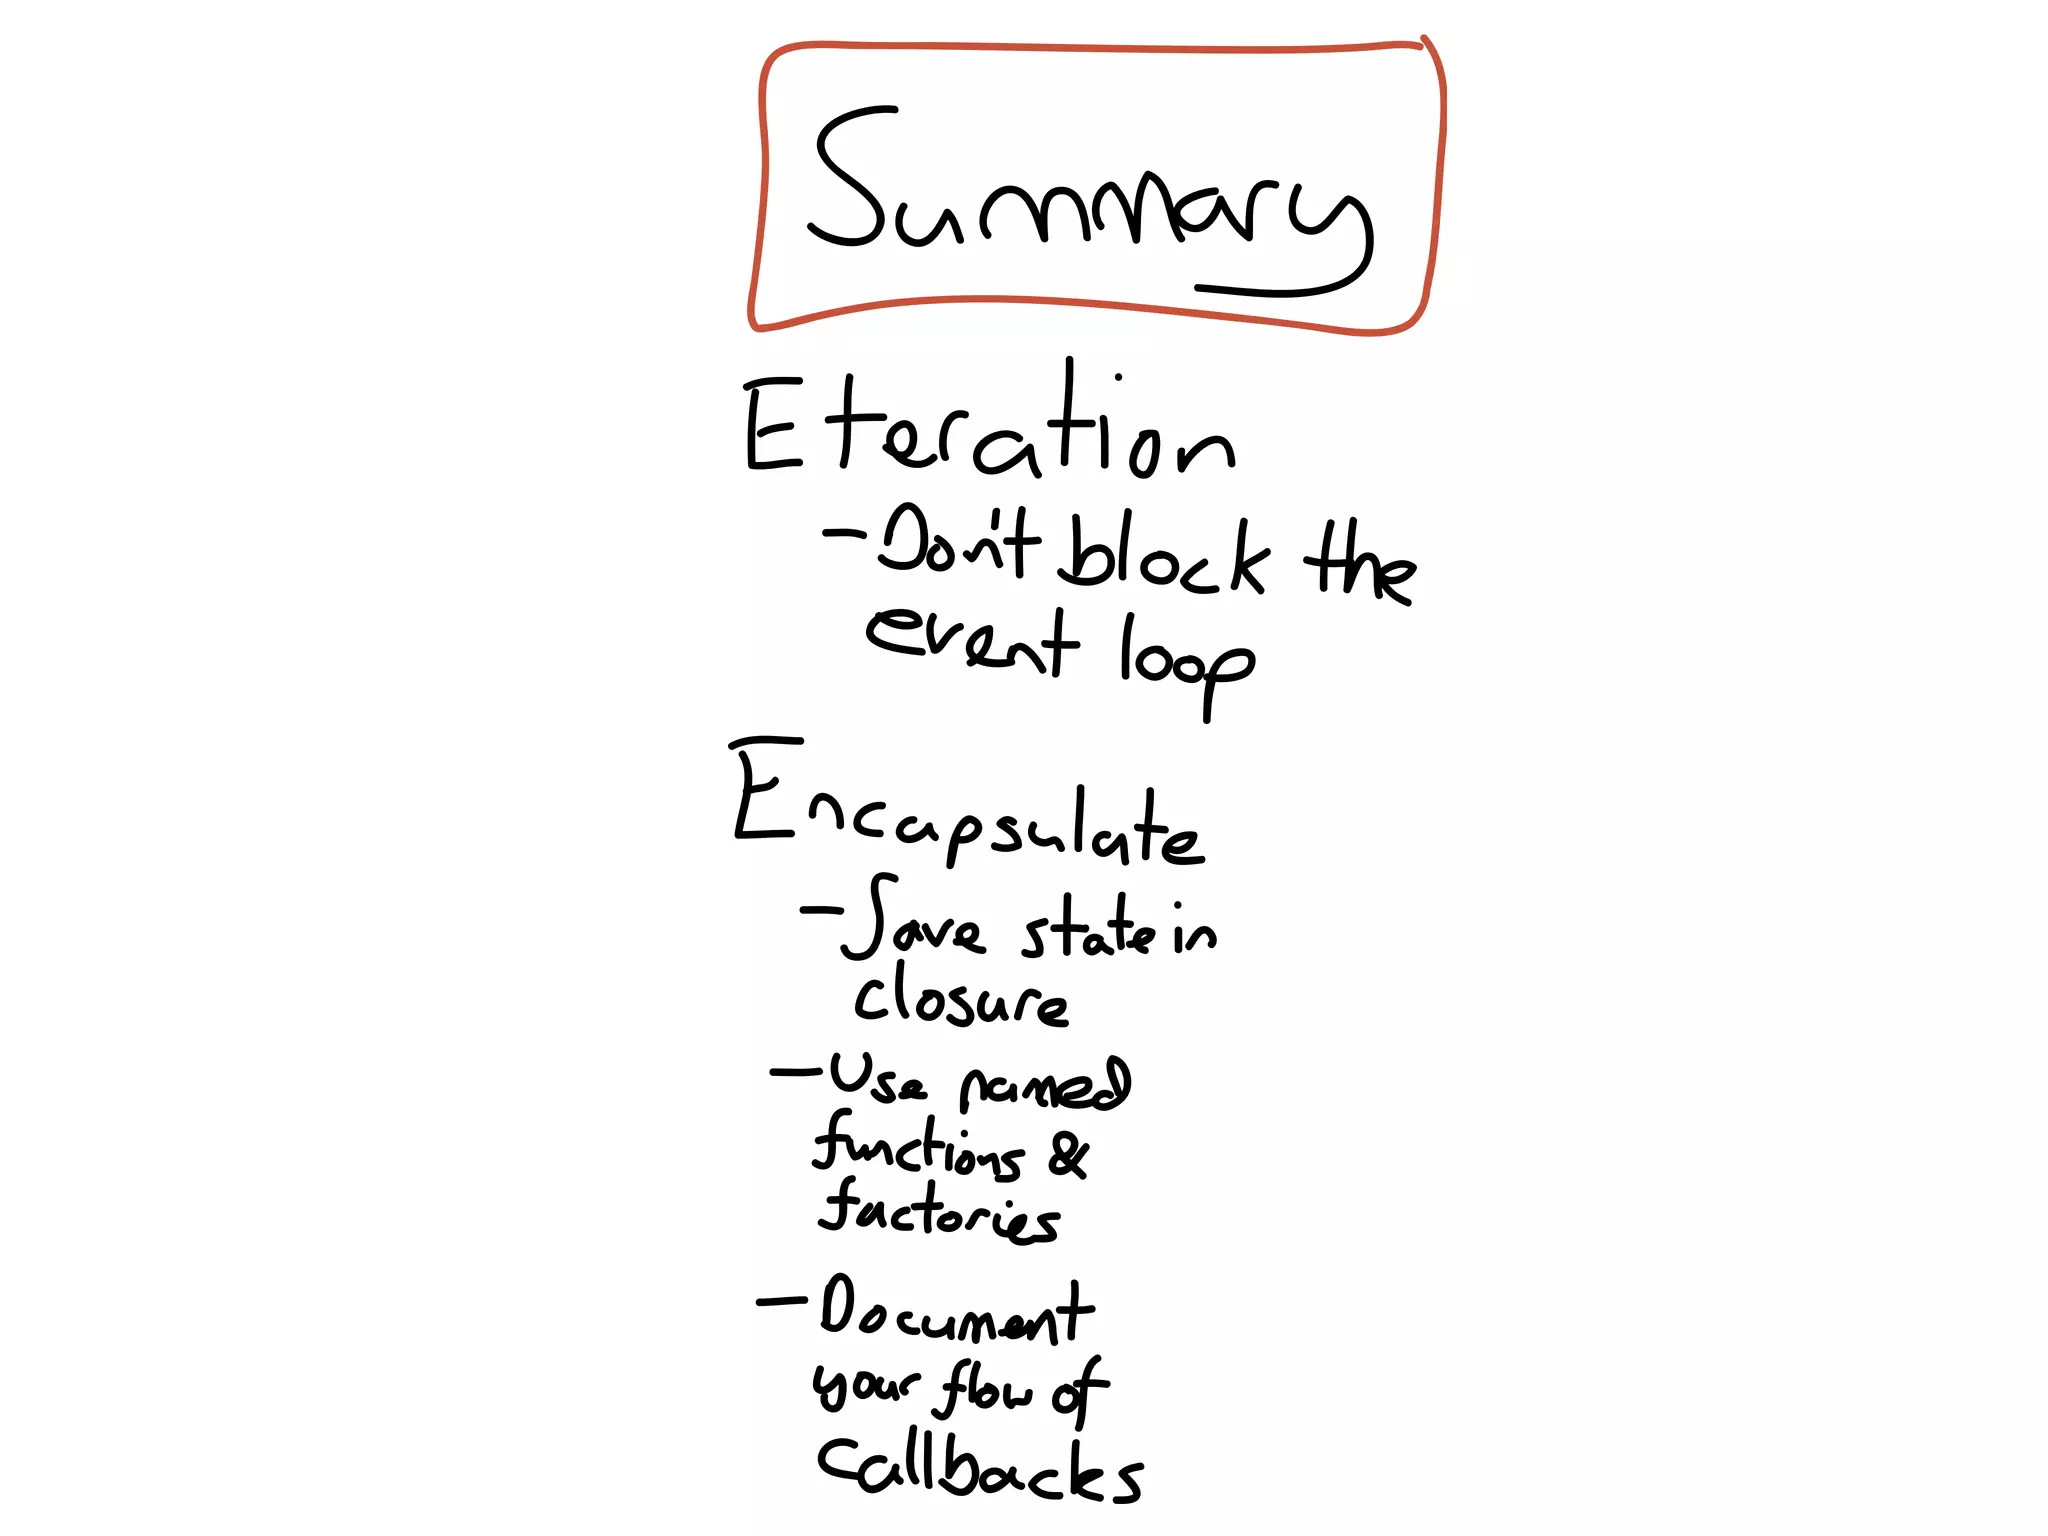 Summary
Eteration
- Don't block the
event loop
Encapsulate
- Save state in
closure
- Use named
functions &
factories
- Document
your flow of
Callbacks